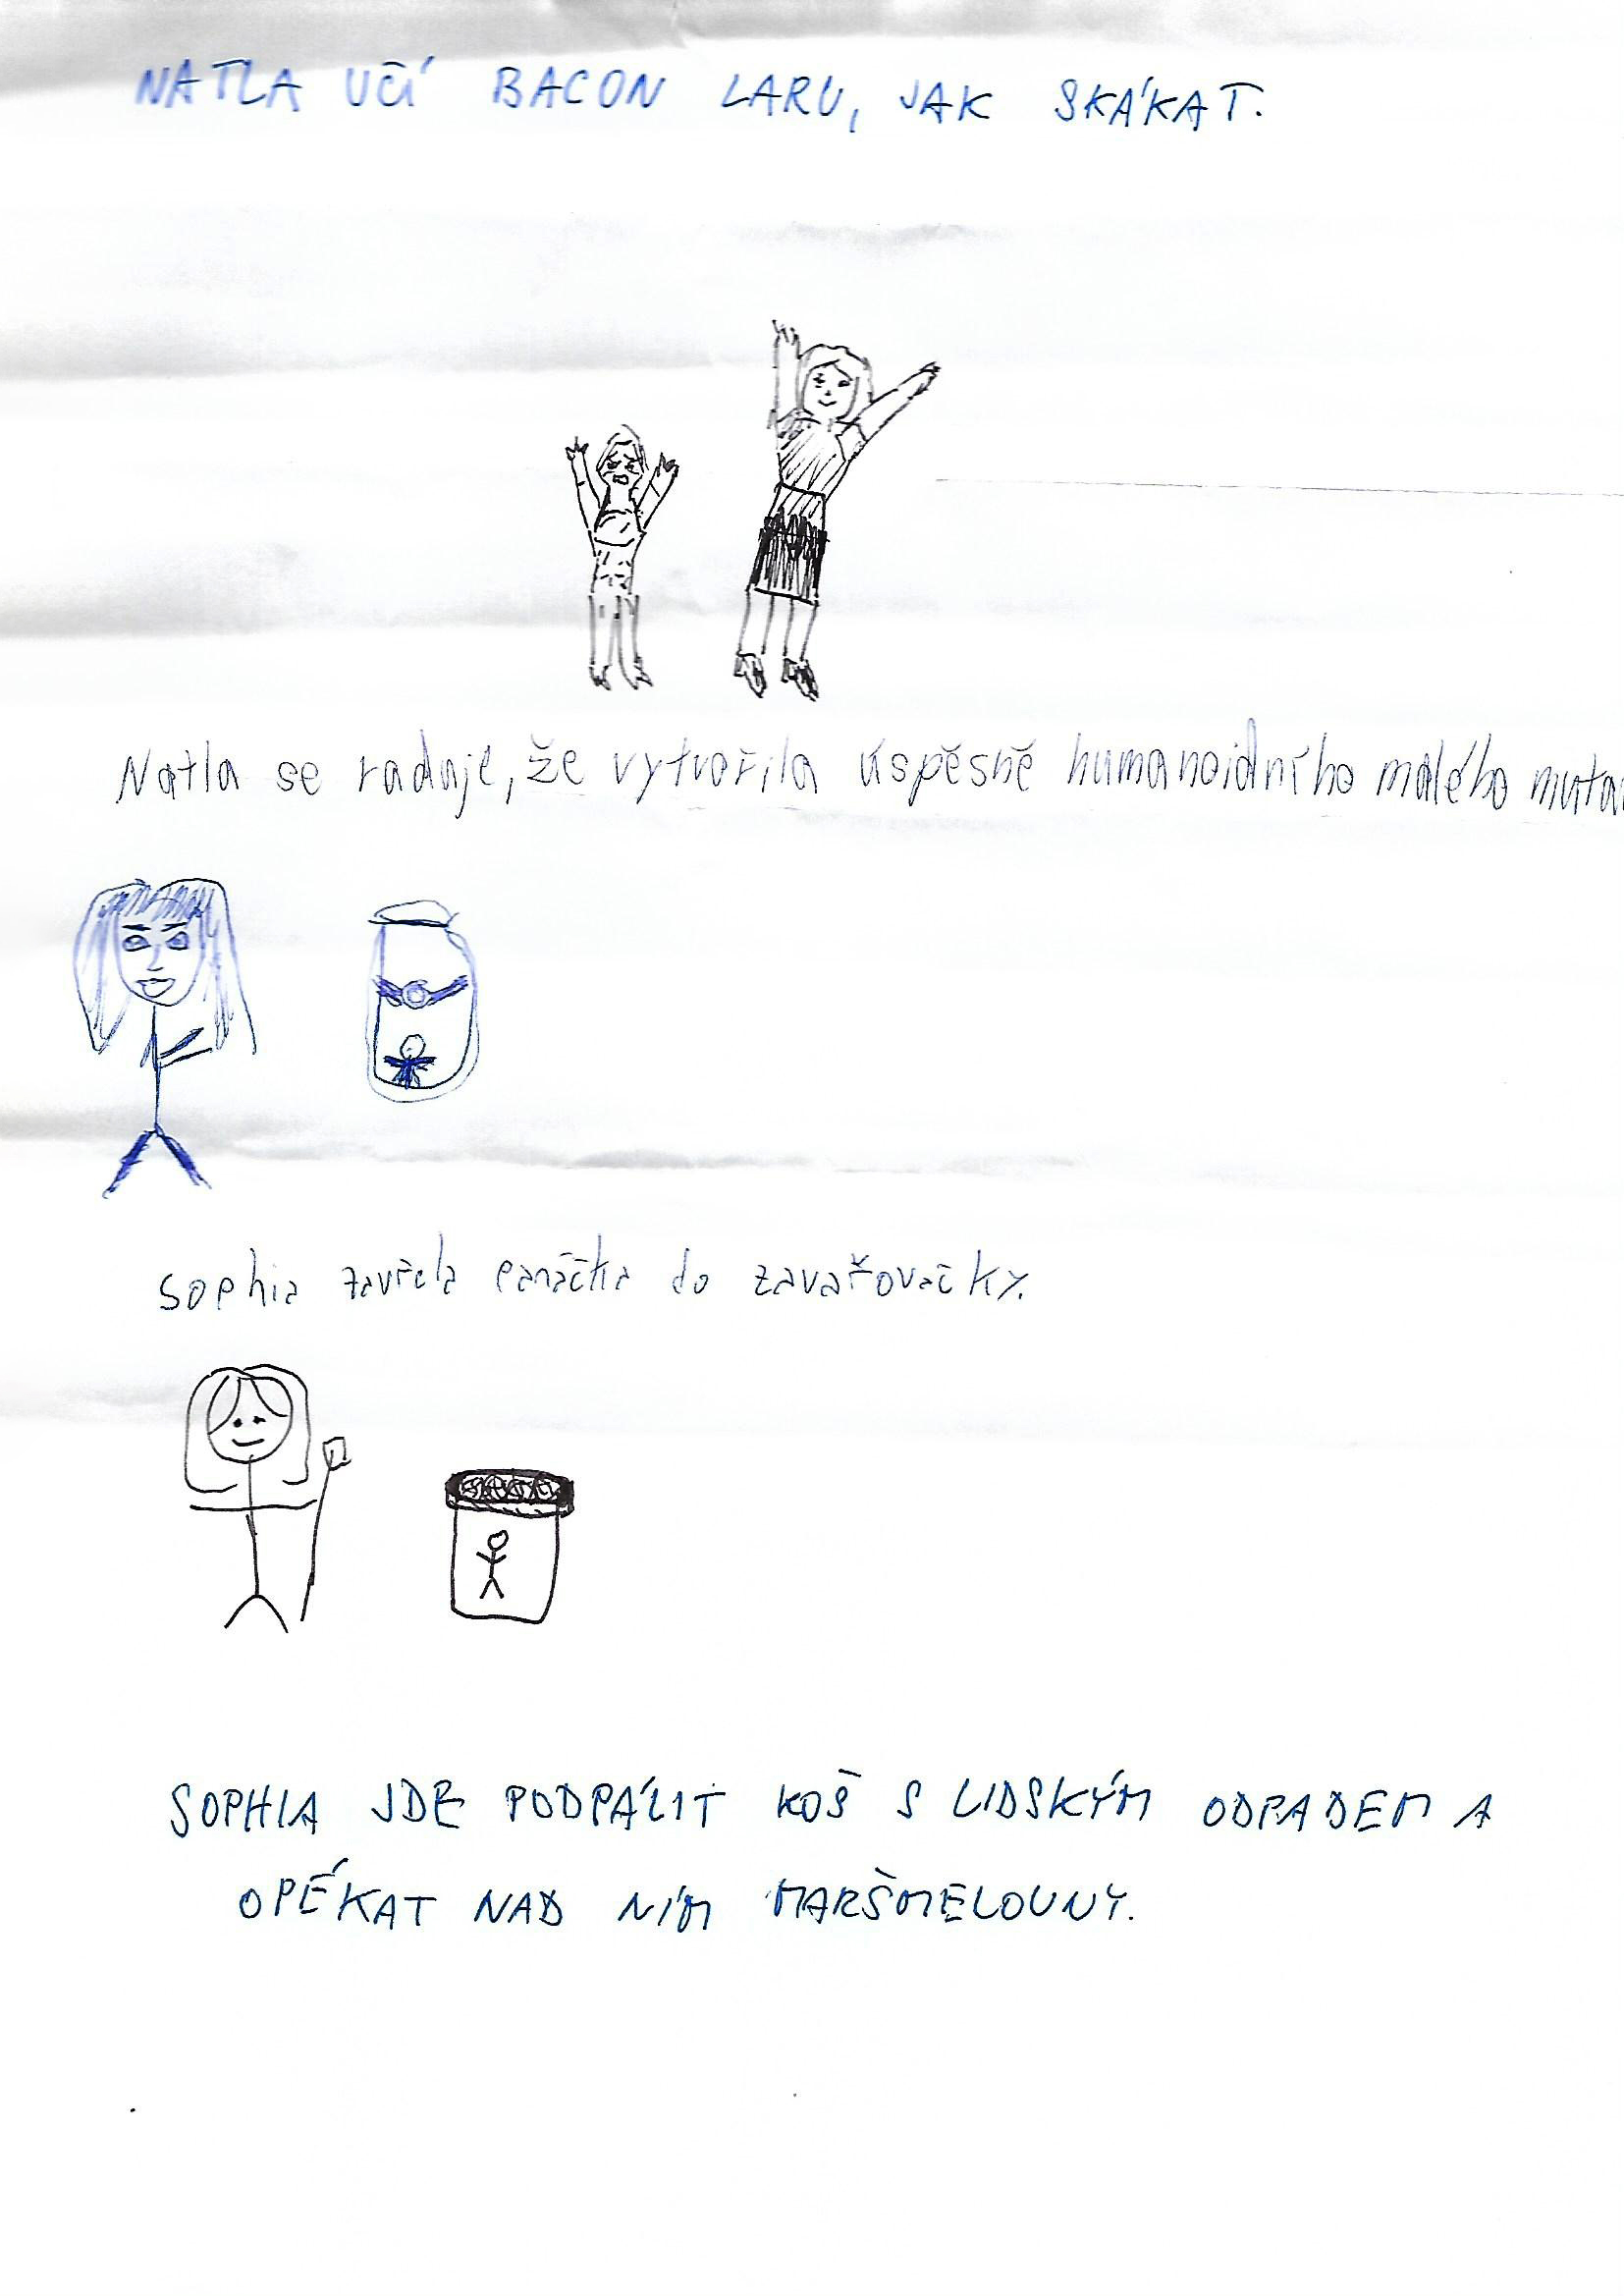 NATLA UČÍ BACON LARU, JAK SKÁKAT.
Natla se raduje, že vytvořila úspěšně humanoidního malého muta
Sophia zavřela panáčka do zavařovačky.
SOPHIA JDE PODPÁLIT KOŠ S LIDSKÝM ODPADEM A
OPÉKAT NAD NÍM MARŠMELOUNY.